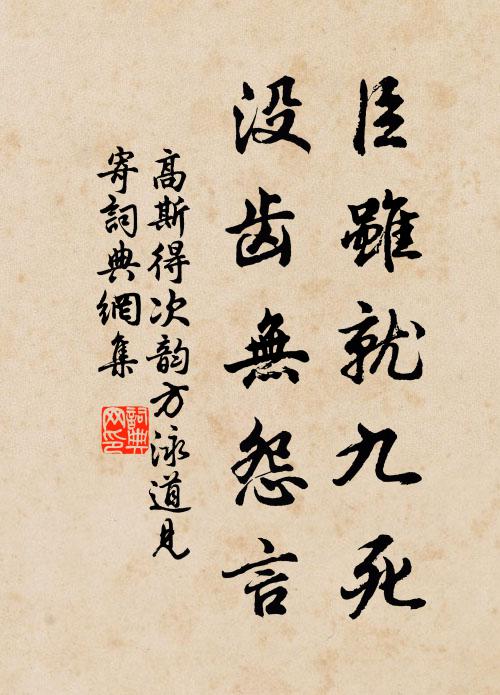 臣雖就九死
没齿無怨言
高斯得次韵方泳道見
寄詞典網集
詞典
网印